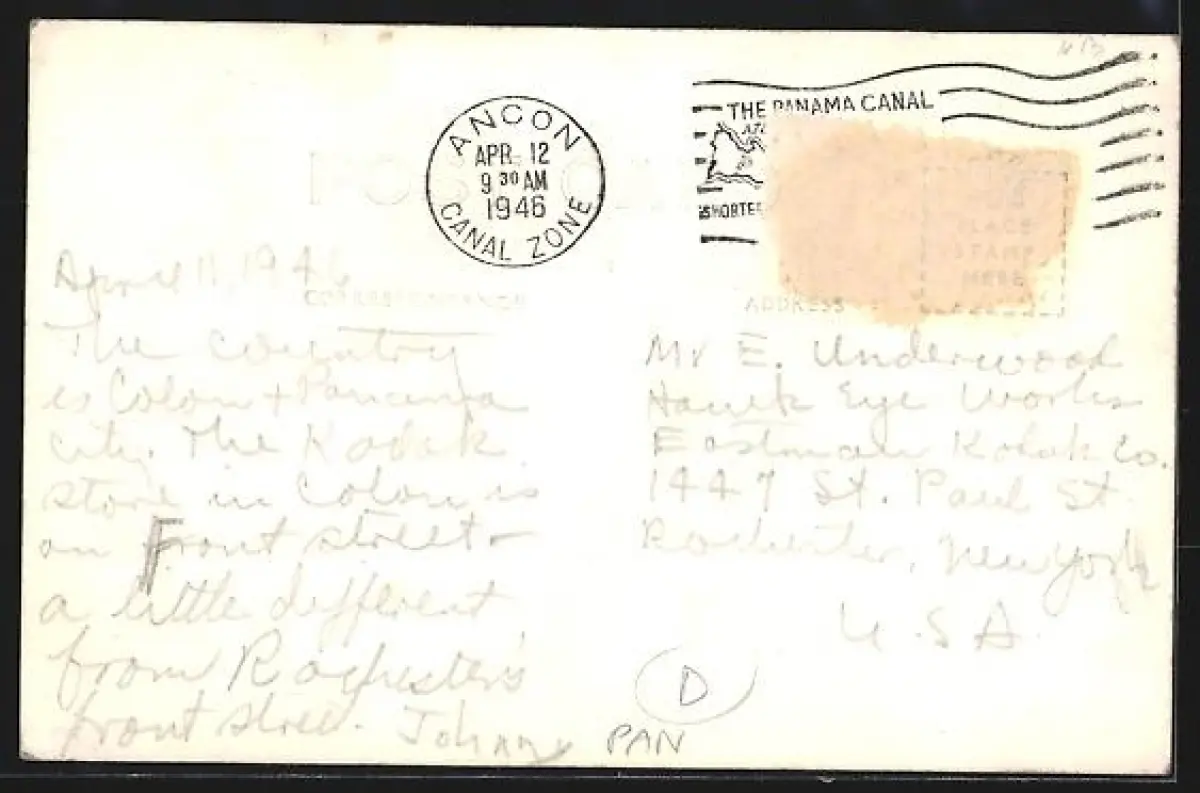 ANCON
APR. 12
9 30 AM
1946
CANAL ZONE
THE PANAMA CANAL
SHORTE
POST CARD
PLACE
STAMP
HERE
CORRESPONDENCE
ADDRESS
April 11, 1946
The country
is Colon + Panama
city. The Kodak
store in Colon is
on Front street -
a little different
from Rochester's
front street. Johnny
Mr E. Underwood
Hawk Eye Works
Eastman Kodak Co.
1447 St. Paul St
Rochester, New York
U.S.A.
D
PAN